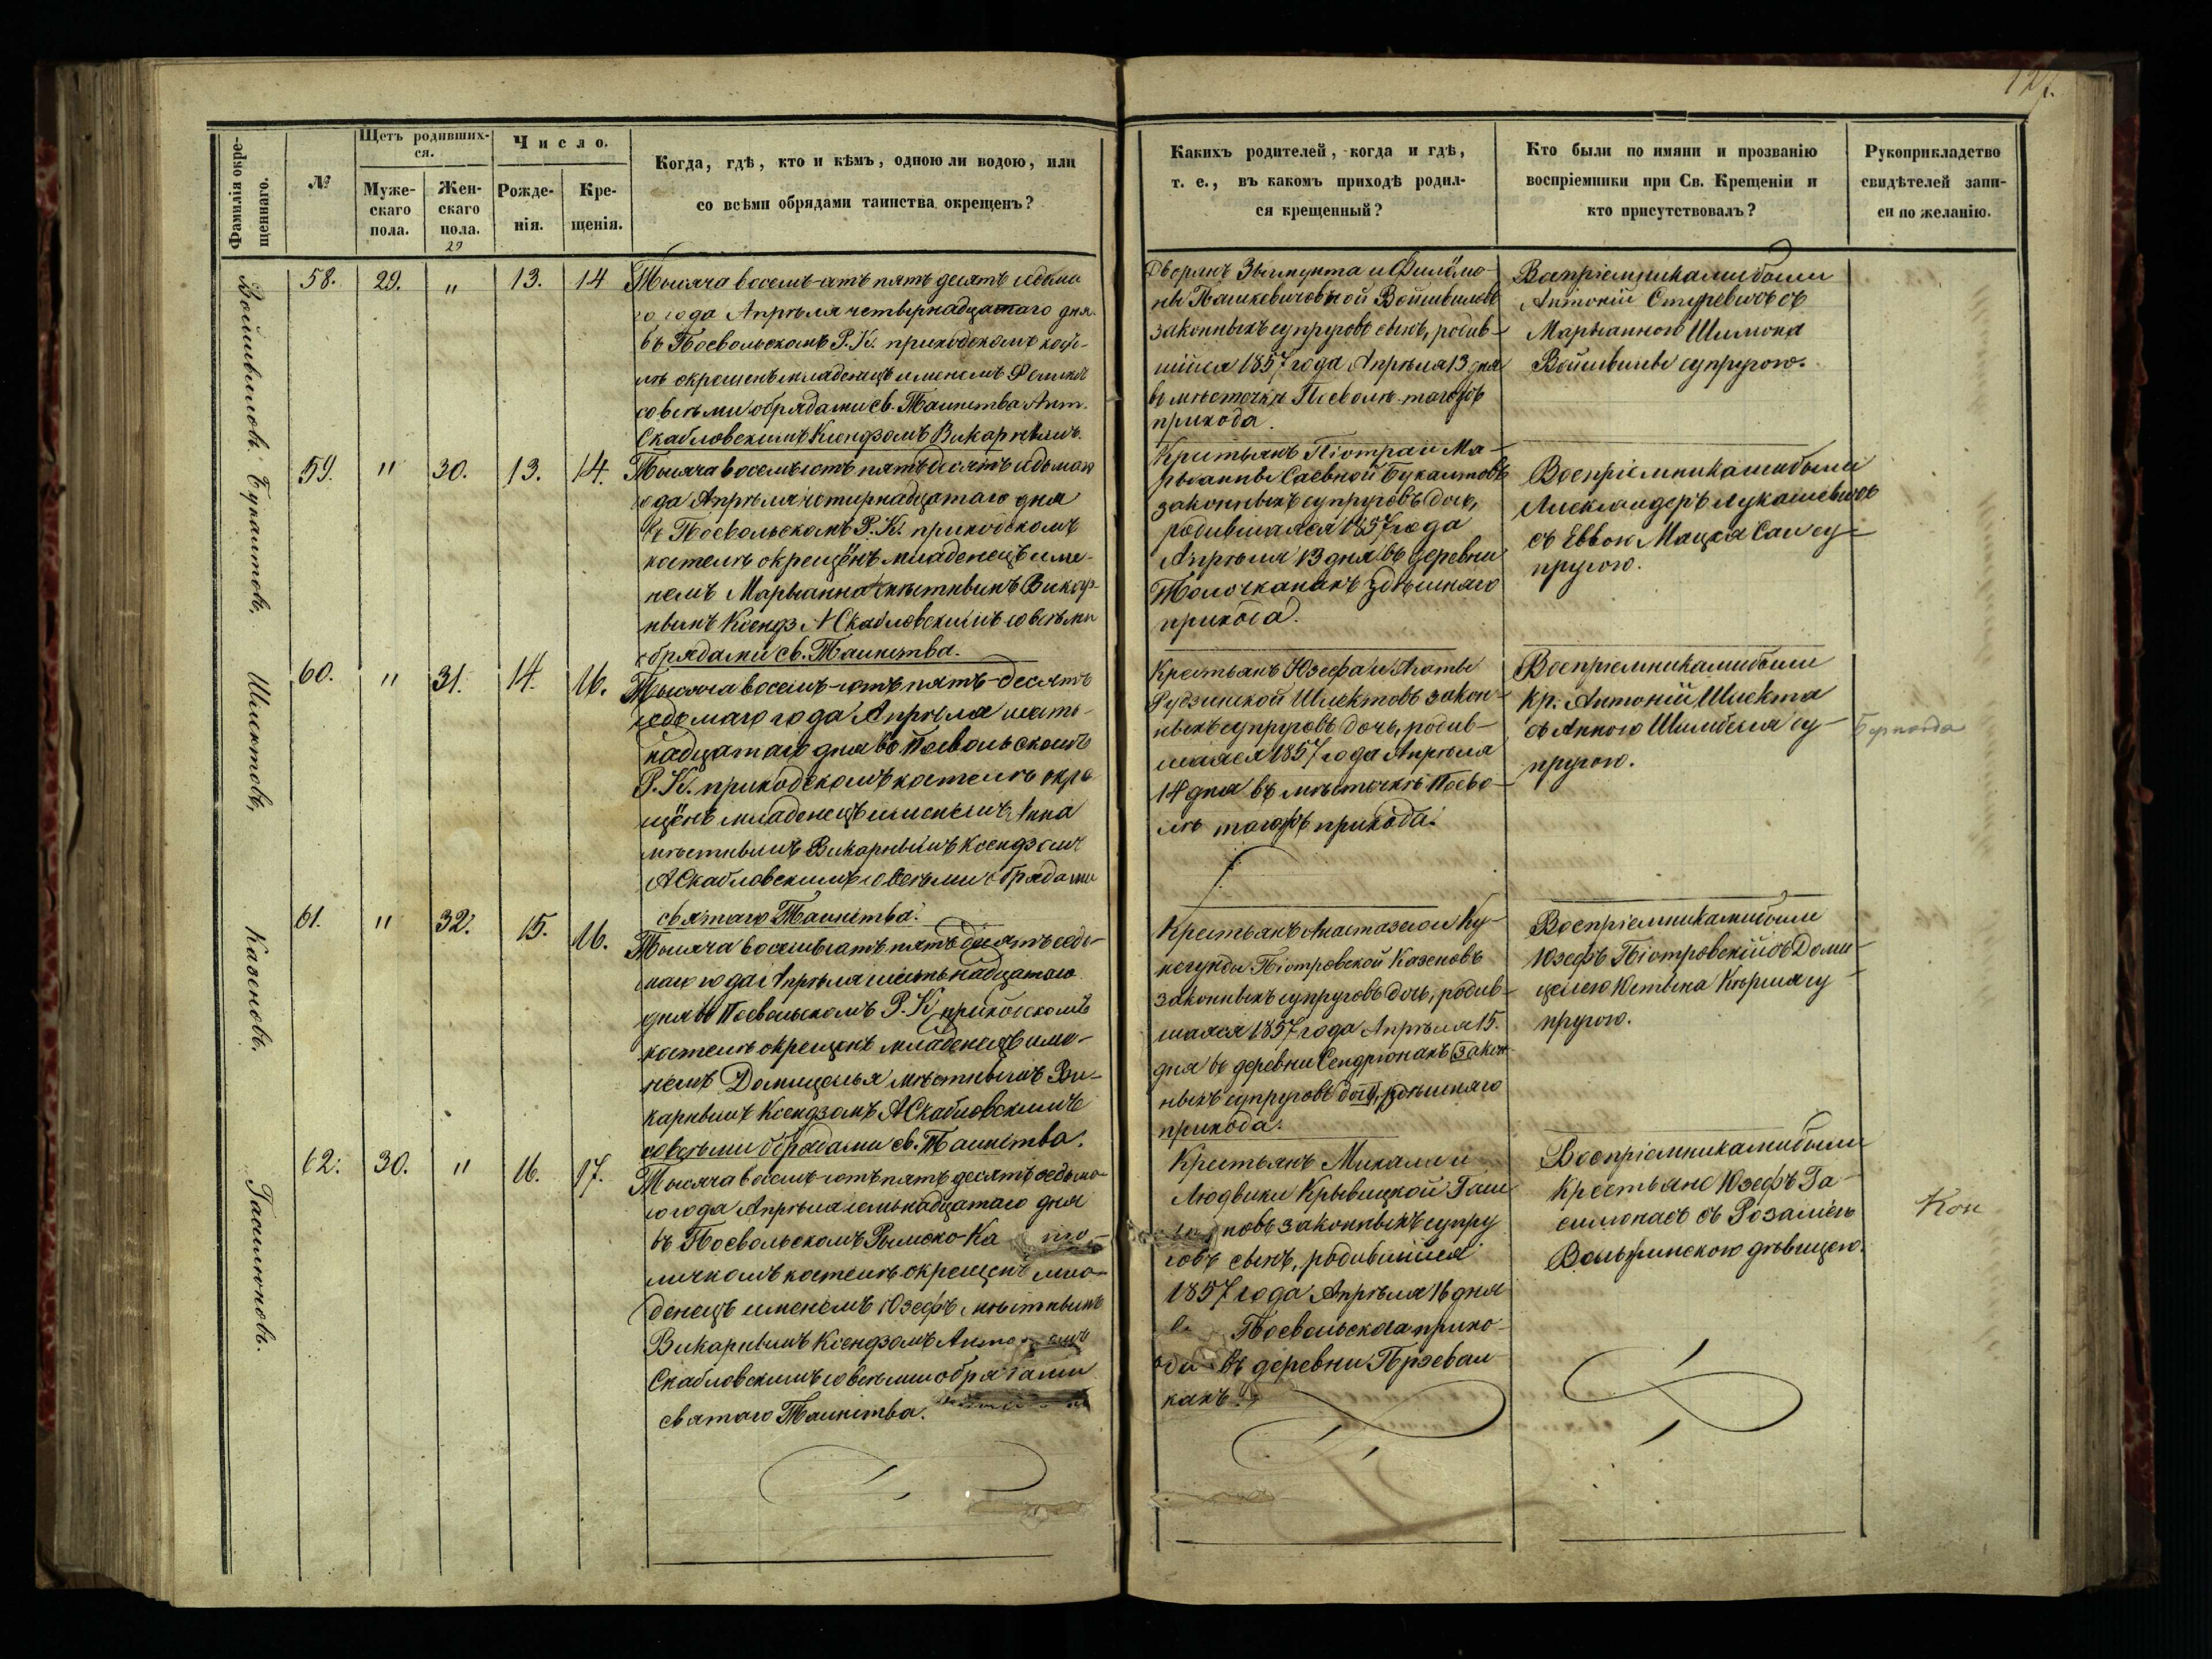 127.
Фамилія окре-
щеннаго.
№
Щетъ родивших-
ся.
Муже-
скаго
пола.
Жен-
скаго
пола.
29
Число.
Рожде-
нія.
Кре-
щенія.
Когда, гдѣ, кто и кѣмъ, одною ли водою, или
со всѣми обрядами таинства окрещенъ?
Какихъ родителей, когда и гдѣ,
т. е., въ какомъ приходѣ родил-
ся крещенный?
Кто были по имяни и прозванію
воспріемники при Св. Крещеніи и
кто присутствовалъ?
Рукоприкладство
свидѣтелей запи-
си по желанію.
Войшвиловъ.
58. 29. " 13. 14
Тысяча восемь-сотъ пять десятъ седьма
го года Апрѣля четырнадцатаго дня
въ Посвольскомъ Р. К. приходскомъ косте-
лѣ окрещенъ младенецъ именемъ Феликсъ
со всѣми обрядами св. Таинства Ант.
Скабловскимъ Ксендзомъ Викарнымъ.
Дворянъ Зыгмунта и Филёмо-
ны Пашкевичовной Войшвиловъ
законныхъ супруговъ сынъ, родив-
шійся 1857 года Апрѣля 13 дня
въ мѣстечкѣ Посволѣ тогожъ
прихода.
Воспріемниками были
Антоній Стуревичъ съ
Марыанною Шимона
Войшвилы супругою.
Букантовъ,
59. " 30. 13. 14.
Тысяча восемь сотъ пять десятъ седьмаго
года Апрѣля четырнадцатаго дня
въ Посвольскомъ Р. К. приходскомъ
костелѣ окрещёнъ младенецъ име-
немъ Марыанна мѣстнымъ Викар-
нымъ Ксендз А Скабловскимъ со всѣми
обрядами св. Таинства.
Крестьянъ Піотра и Ма-
рыанны Саевной Букантовъ
законныхъ супруговъ дочь,
родившаяся 1857 года
Апрѣля 13 дня въ деревни
Толочканахъ здѣшняго
прихода.
Воспріемниками были
Александеръ Лукашевичъ
съ Еввою Мацѣя Саи су-
пругою.
Шлектовъ,
60. " 31. 14. 16.
Тысяча восемь-сотъ пять-десятъ
седьмаго года Апрѣля шесть-
надцатаго дня въ Посвольскомъ
Р. К. приходскомъ костелѣ окре-
щёнъ младенецъ именемъ Анна
мѣстнымъ Викарнымъ Ксендзомъ
А Скабловскимъ со всѣми обрядами
святаго Таинства.
Крестьянъ Юзефа и Агаты
Рудзинской Шлектовъ закон-
ныхъ супруговъ дочь, родив-
шаяся 1857 года Апрѣля
14 дня въ мѣстечкѣ Посво-
лѣ тогожъ прихода.
Воспріемниками были
Кр. Антоній Шлекта
съ Анною Шимбеля су-
пругою.
Казеновъ.
61. " 32. 15. 16.
Тысяча восемь сотъ пять десятъ седь-
маго года Апрѣля шестьнадцатаго
дня въ Посвольскомъ Р. К. приходскомъ
костелѣ окрещенъ младенецъ име-
немъ Домицелья мѣстнымъ Ви-
карнымъ Ксендзомъ А Скабловскимъ
со всѣми обрядами св. Таинства.
Крестьянъ Анастазего и Ку-
негунды Піотровской Казеновъ
законныхъ супруговъ дочь, родив-
шаяся 1857 года Апрѣля 15.
дня въ деревни Сендрюнахъ закон-
ныхъ супруговъ дочь, здѣшняго
прихода.
Воспріемниками были
Юзефъ Піотровскій съ Доми-
целею Юстына Кѣрши су-
пругою.
Гасюноновъ.
62. 30. " 16. 17.
Тысяча восемь-сотъ пять десятъ седьма-
го года Апрѣля семьнадцатаго дня
въ Посвольскомъ Рымско-Ка то-
лическомъ костелѣ окрещенъ мла-
денецъ именемъ Юзефъ мѣстнымъ
Викарнымъ Ксендзомъ Антоніемъ
Скабловскимъ со всѣми обрядами
святаго Таинства.
Крестьянъ Михала и
Людвики Крывицкой
новъ законныхъ супру
говъ сынъ, родившійся
1857 года Апрѣля 16 дня
Посвольскаго прихо-
да въ деревни Прзевал-
кахъ.
Воспріемниками были
Крестьяне Юзефъ Га-
силюнасъ съ Розаліею
Вольфинскою дѣвицею.
Кон